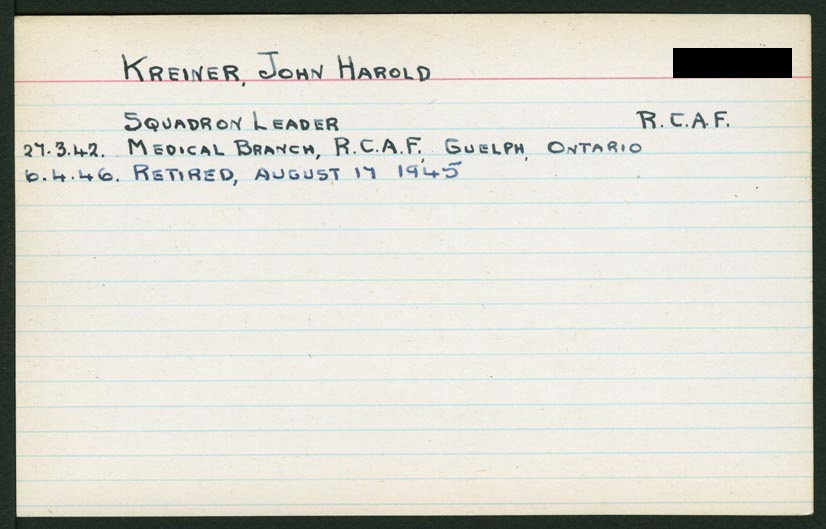 KREINER, JOHN HAROLD
SQUADRON LEADER R.C.A.F.
27.3.42. MEDICAL BRANCH, R.C.A.F., GUELPH, ONTARIO
6.4.46. RETIRED, AUGUST 17 1945